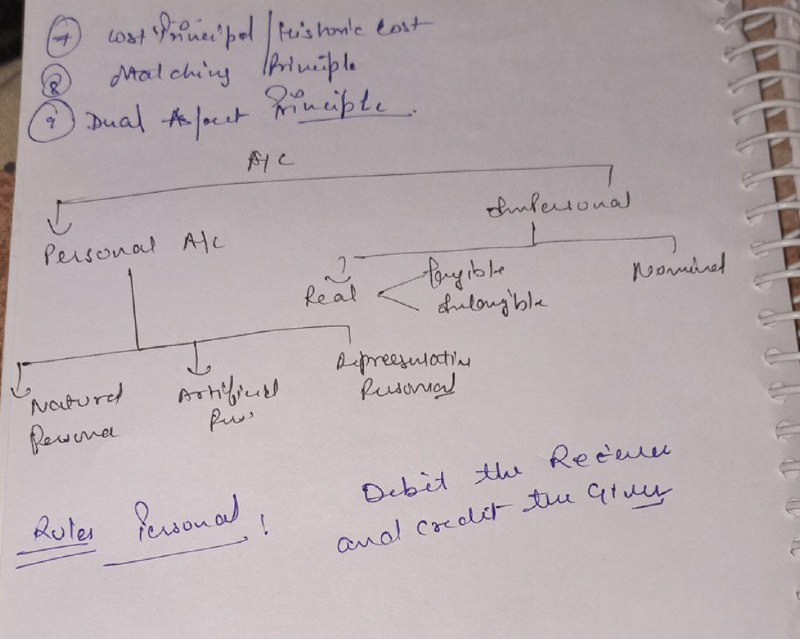 7 Cost Principal / Historic Cost
8 Matching Principle
9 Dual Aspect Principle.
A/c
Personal A/c
Impersonal
Real
Tangible
Intangible
Nominal
Natural
Personal
Artificial
Per.
Representative
Personal
Rules Personal :
Debit the Receiver
and credit the Giver